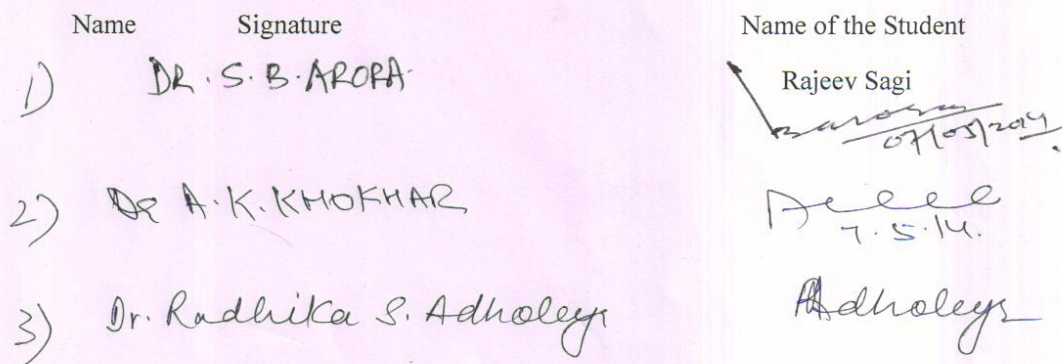 Name Signature Name of the Student
Rajeev Sagi
1) DR. S. B. ARORA
07/05/2014
2) DR A. K. KHOKHAR
7.5.14.
3) Dr. Radhika S. Adholeya Adholeya